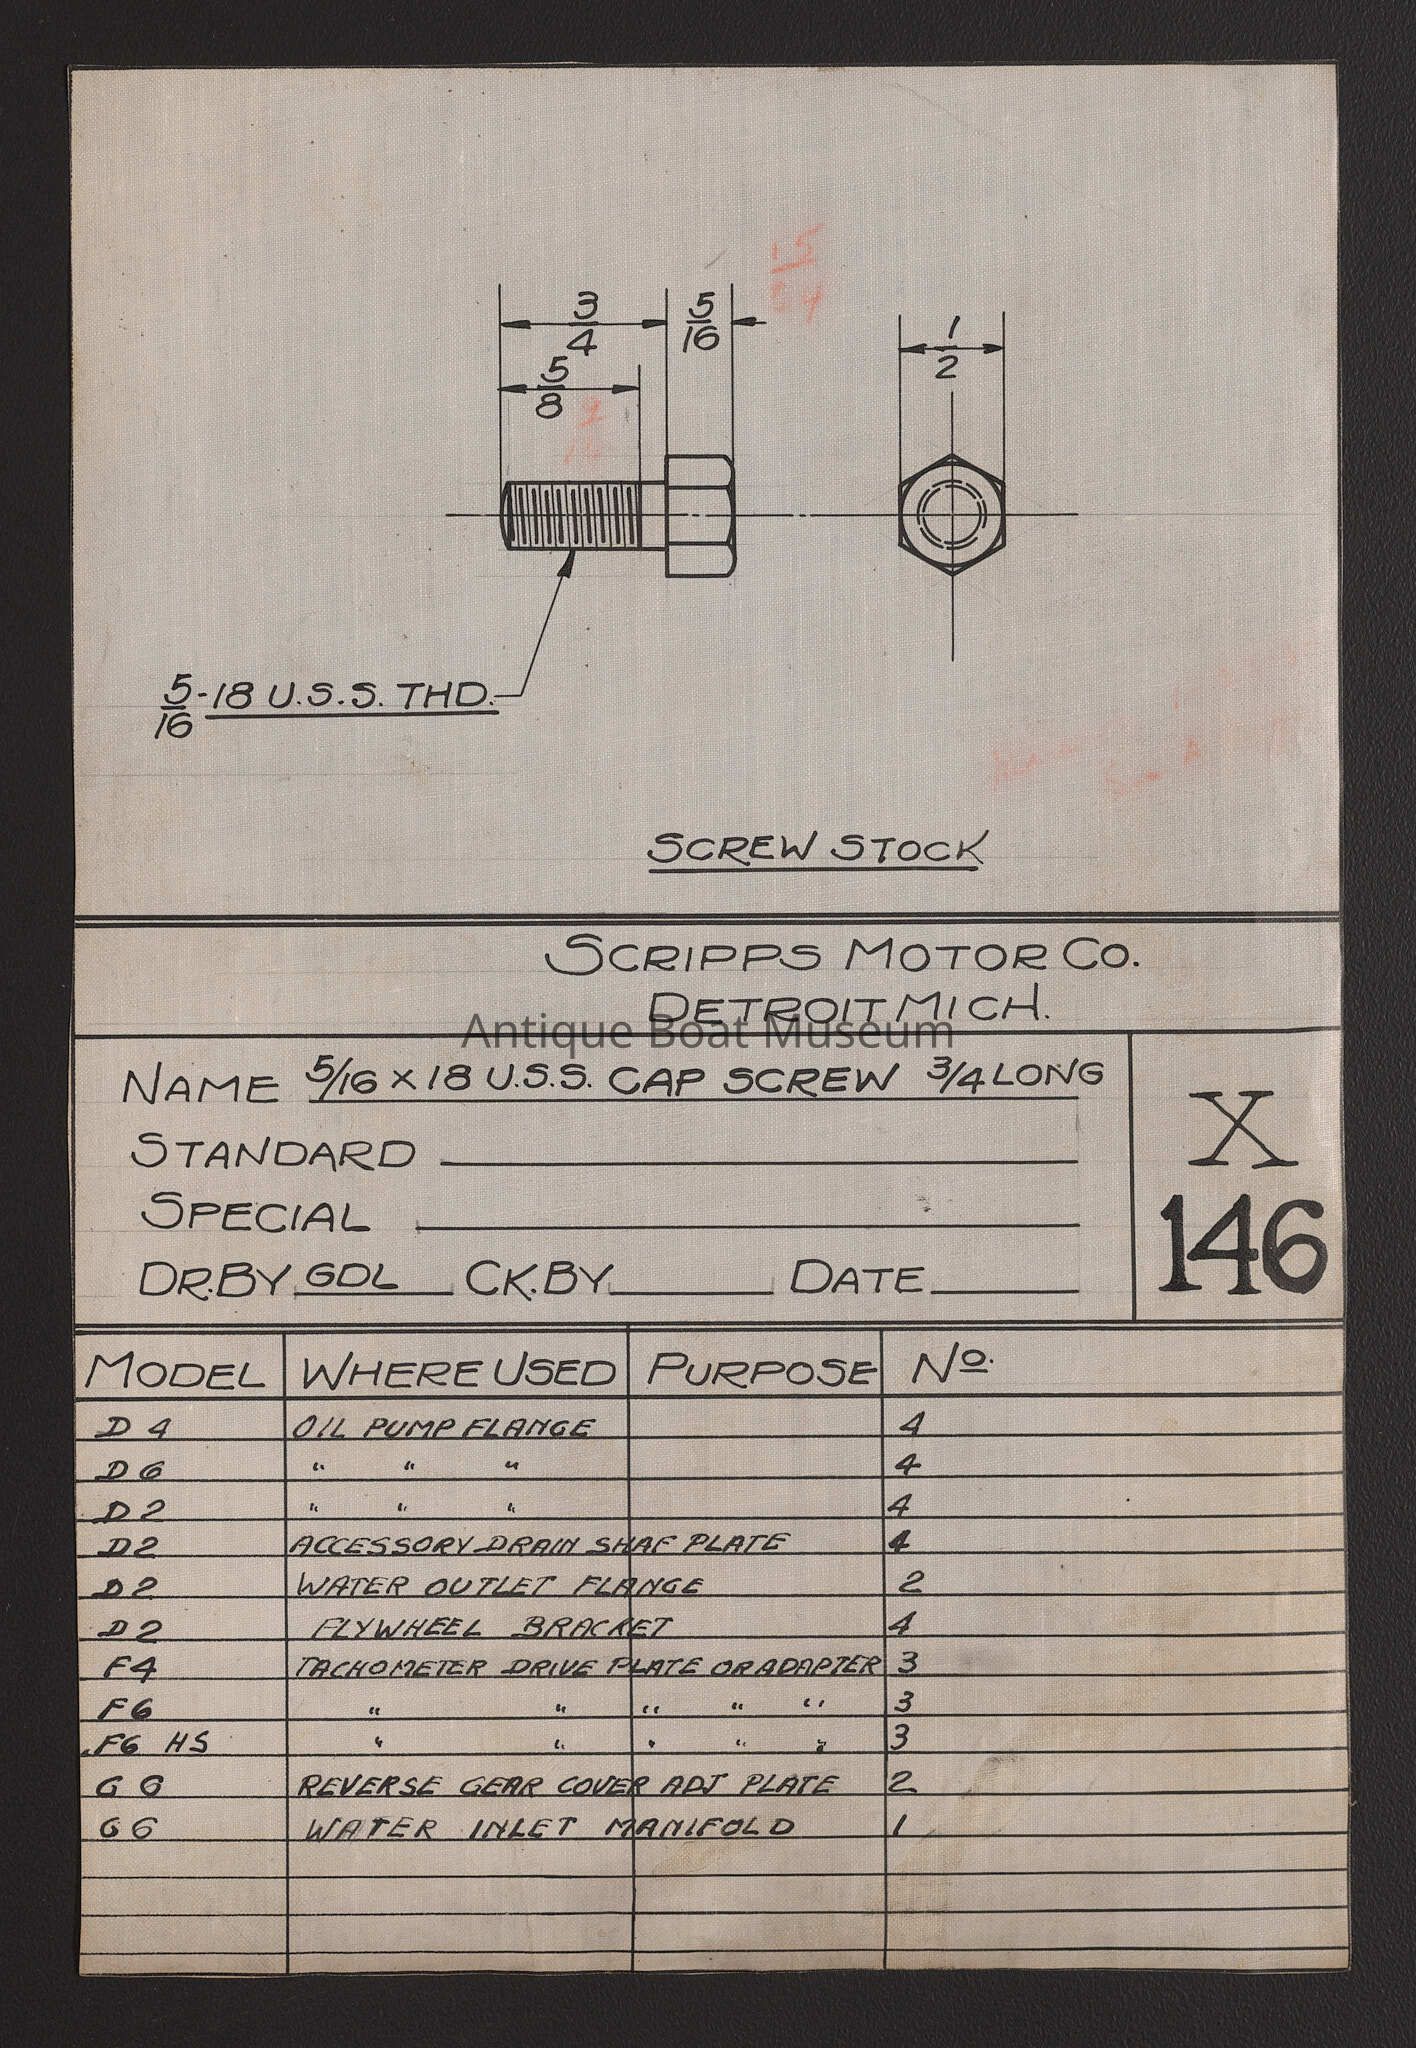 3/4
5/16
15
64
1/2
5/8
9
16
5/16-18 U.S.S. THD.
SCREW STOCK
SCRIPPS MOTOR CO.
DETROIT MICH.
Antique Boat Museum
NAME 5/16 x 18 U.S.S. CAP SCREW 3/4 LONG
STANDARD
SPECIAL
DR.BY GDL CK.BY DATE
X
146
MODEL WHERE USED PURPOSE No.
D 4 OIL PUMP FLANGE 4
D 6 " " " 4
D 2 " " " 4
D 2 ACCESSORY DRAIN SHAF PLATE 4
D 2 WATER OUTLET FLANGE 2
D 2 FLYWHEEL BRACKET 4
F4 TACHOMETER DRIVE PLATE OR ADAPTER 3
F6 " " " " " 3
F6 HS " " " " " 3
G 6 REVERSE GEAR COVER ADJ PLATE 2
G 6 WATER INLET MANIFOLD 1